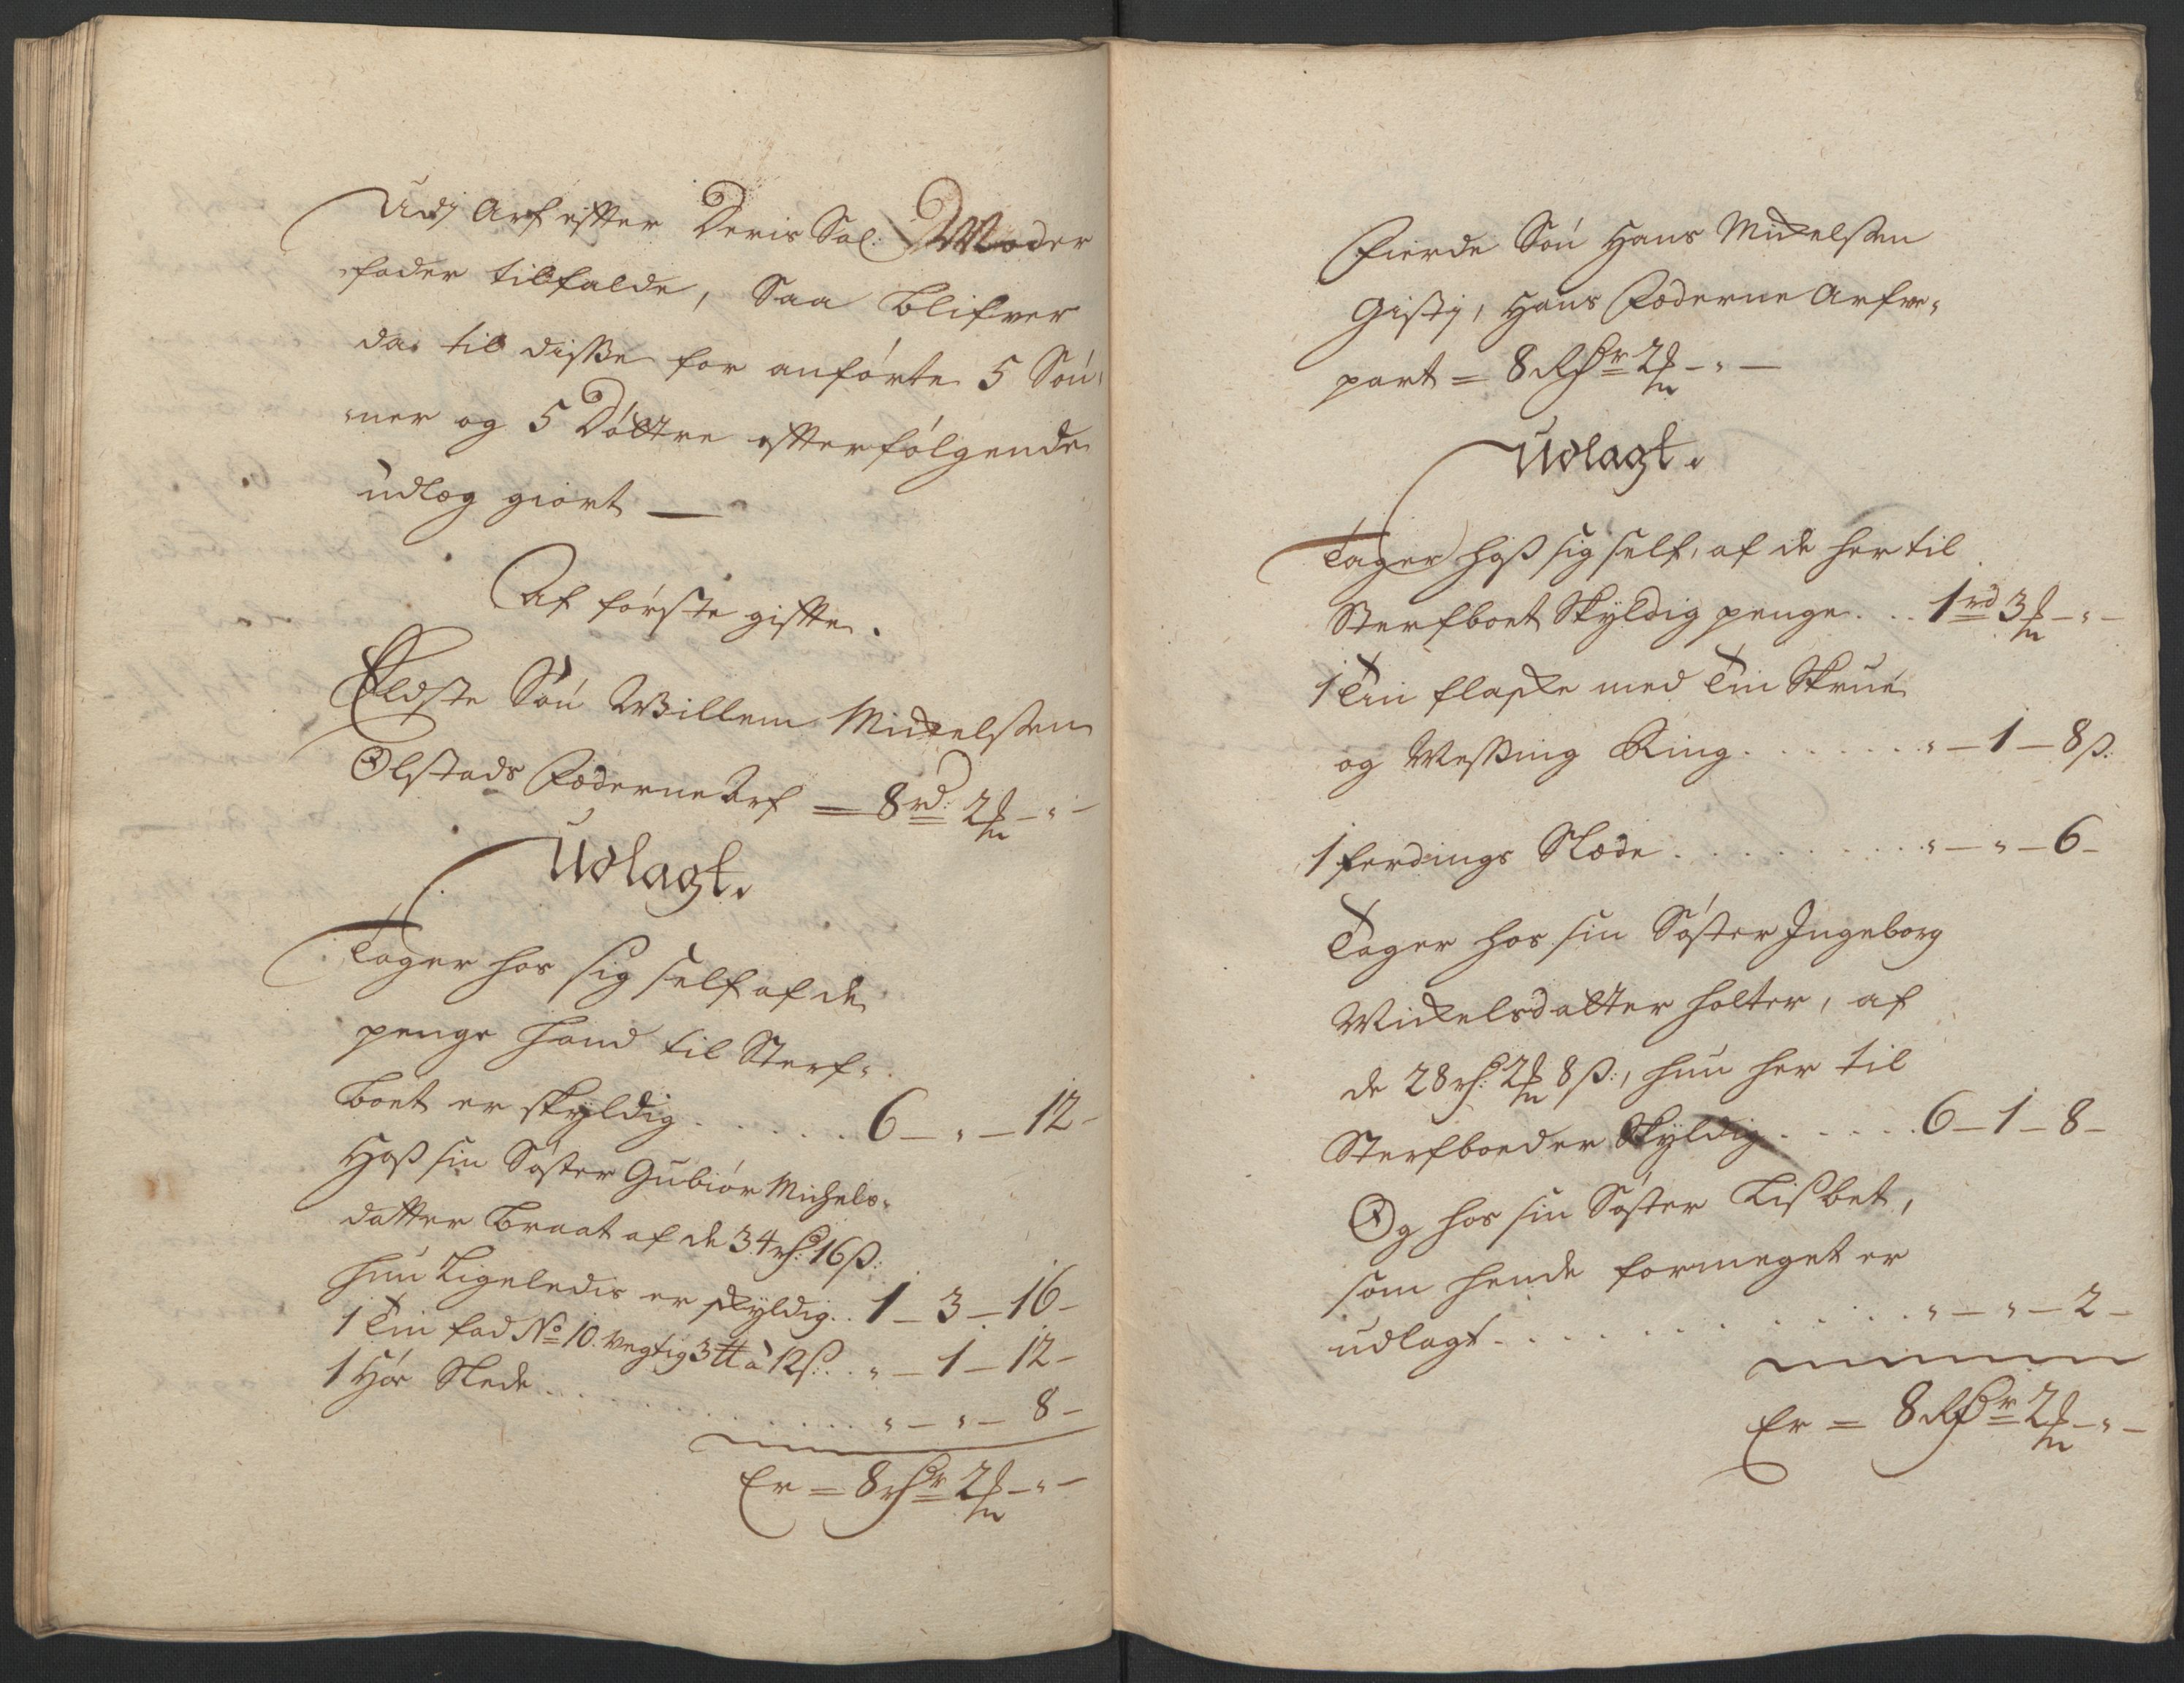 Udj Arf effter Deris Sal: Moder
fader tilfalde, Saa blifver
da til disße for anførte 5 Søn¬
ner og 5 Døttre effterfølgende
udlæg giort ‒
Af første gifte.
Eldste Søn Willem Mickelsen
Olstads Fæderne Arf = 8 rd: 2 ₰ ‒ " ‒
Udlagt.
Tager hos sig self af de
penge hand til Sterf¬
boet er skyldig . . . . . 6 ‒ " ‒ 12 ‒
Hoß sin Søster Gubiør Michels¬
datter Braat af de 34 rd: 16 ß:
hun Ligeledis er skyldig . . 1 ‒ 3 ‒ 16 ‒
1 Tin fad No 10. vegtig 3 ℔ à 12 ß: . . " ‒ 1 ‒ 12 ‒
1 Høe Slede . . . . . . . . " ‒ " ‒ 8 ‒
Er = 8 rdr 2 ₰ ‒ " ‒
Fierde Søn Hans Mickelsen
Gistj, Hans Fæderne Arfve¬
part = 8 Rdr 2 ₰ ‒ " ‒
Udlagt.
Tager hoß sig self, af de her til
Sterfboet Skyldig penge . . 1 rd 3 ₰ ‒ " ‒
1 Tin flaske med Tin Skrue
og Meßing Ring . . . . . . " ‒ 1 ‒ 8 ß:
1 ferdings Slæde . . . . . . . . " ‒ " ‒ 6 ‒
Tager hos sin Søster Ingeborg
Mickelsdatter Holter, af
de 28 rd: 2 ₰ 8 ß:, hun her til
Sterfboed er Skyldig . . . . . 6 ‒ 1 ‒ 8 ‒
Og hos sin Søster Lisbet,
som hende formeget er
udlagt . . . . . . . . . . " ‒ " ‒ 2 ‒
Er = 8 Rdr 2 ₰ ‒ " ‒